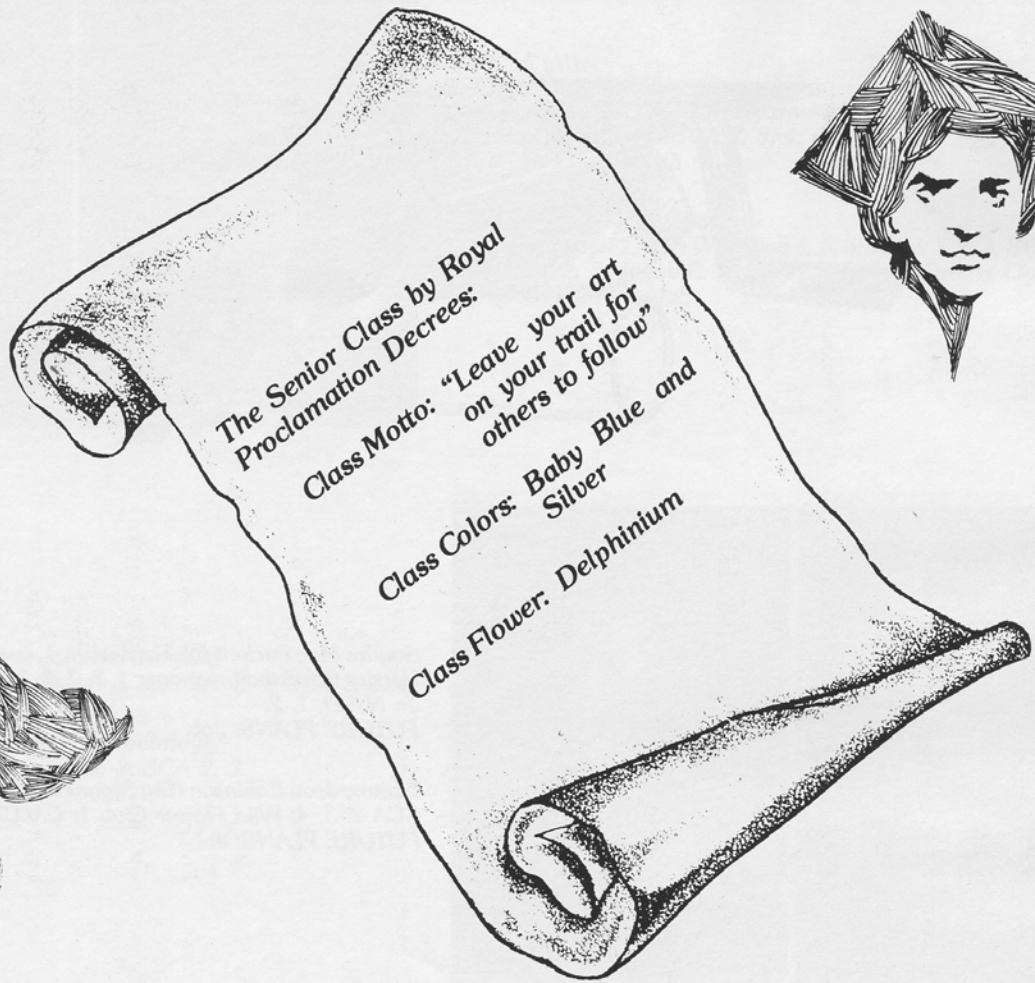 The Senior Class by Royal
Proclamation Decrees:
Class Motto: “Leave your art
on your trail for
others to follow”
Class Colors: Baby Blue and
Silver
Class Flower: Delphinium
FUTURE PLANS: Job
FUTURE PLANS: